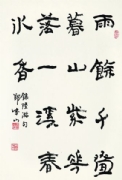 雨餘千疊
暮山紫花
落一溪春
水香
錄陸游句